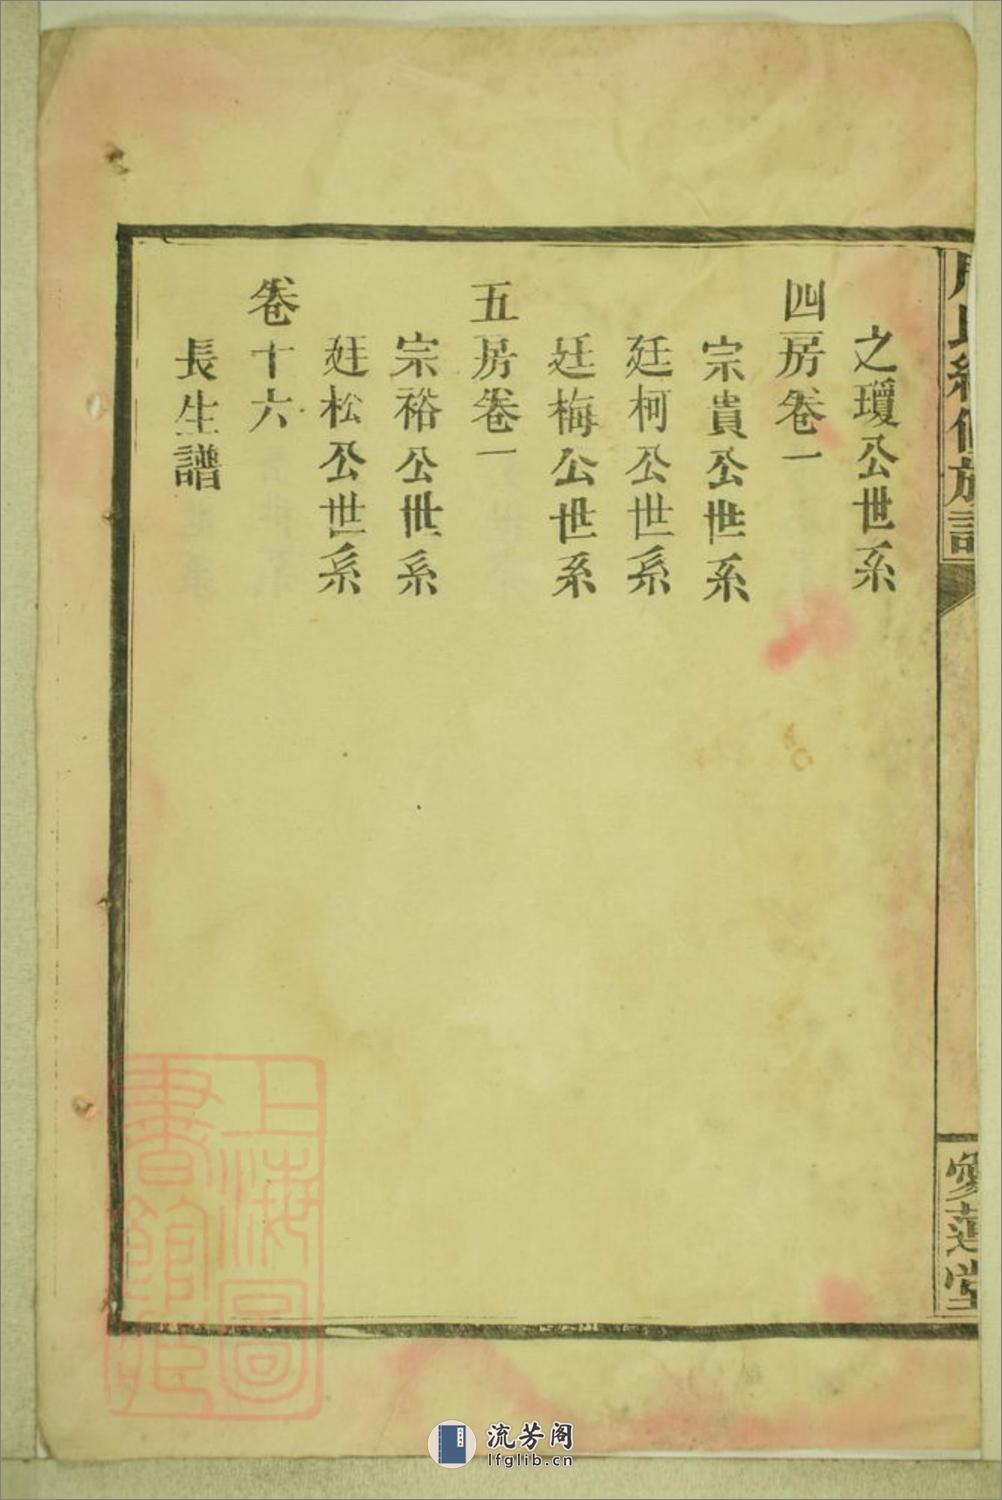 周氏續修族譜
愛蓮堂
之瓊公世系
四房卷一
宗貴公世系
廷柯公世系
廷梅公世系
五房卷一
宗裕公世系
廷松公世系
卷十六
長生譜
上海圖
書館藏
流芳阁
lfglib.cn